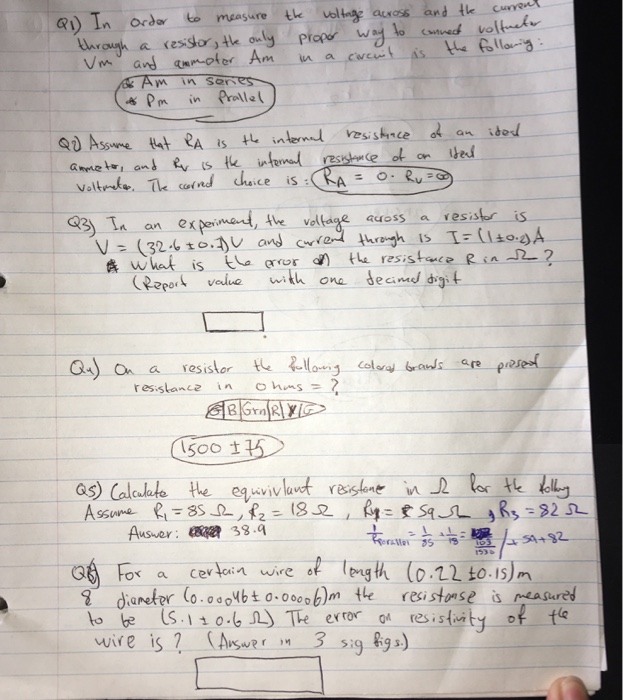 Q1) In order to measure the voltage across and the current
through a resistor, the only proper way to connect voltmeter
Vm and ammeter Am in a circuit is the following:
* Am in series
* Pm in Prallel
Q2) Assume that RA is the internal resistance of an ideal
ammeter, and Rv is the internal resistance of an ideal
voltmeter. The correct choice is: RA = 0. Rv = ∞
Q3) In an experiment, the voltage across a resistor is
V = (32.6 ± 0.7)V and current through is I = (1 ± 0.2)A
What is the error on the resistance R in Ω?
(Report value with one decimal digit
Q4) On a resistor the following colored brands are presed
resistance in ohms = ?
B Grn R G
1500 ± 75
Q5) Calculate the equivivlant resistone in Ω for the follwy
Assume R1 = 85 Ω, R2 = 18 Ω, R4 = 59 Ω, R3 = 82 Ω
Answer: 38.9
1/Rparallel = 1/85 + 1/18 = 103/1530 / + 59 + 82
Q6) For a certain wire of length (0.22 ± 0.15)m
& diameter (0.00046 ± 0.00006)m the resistanse is measured
to be (5.1 ± 0.6 Ω) The error on resistivity of the
wire is? (Answer in 3 sig figs.)